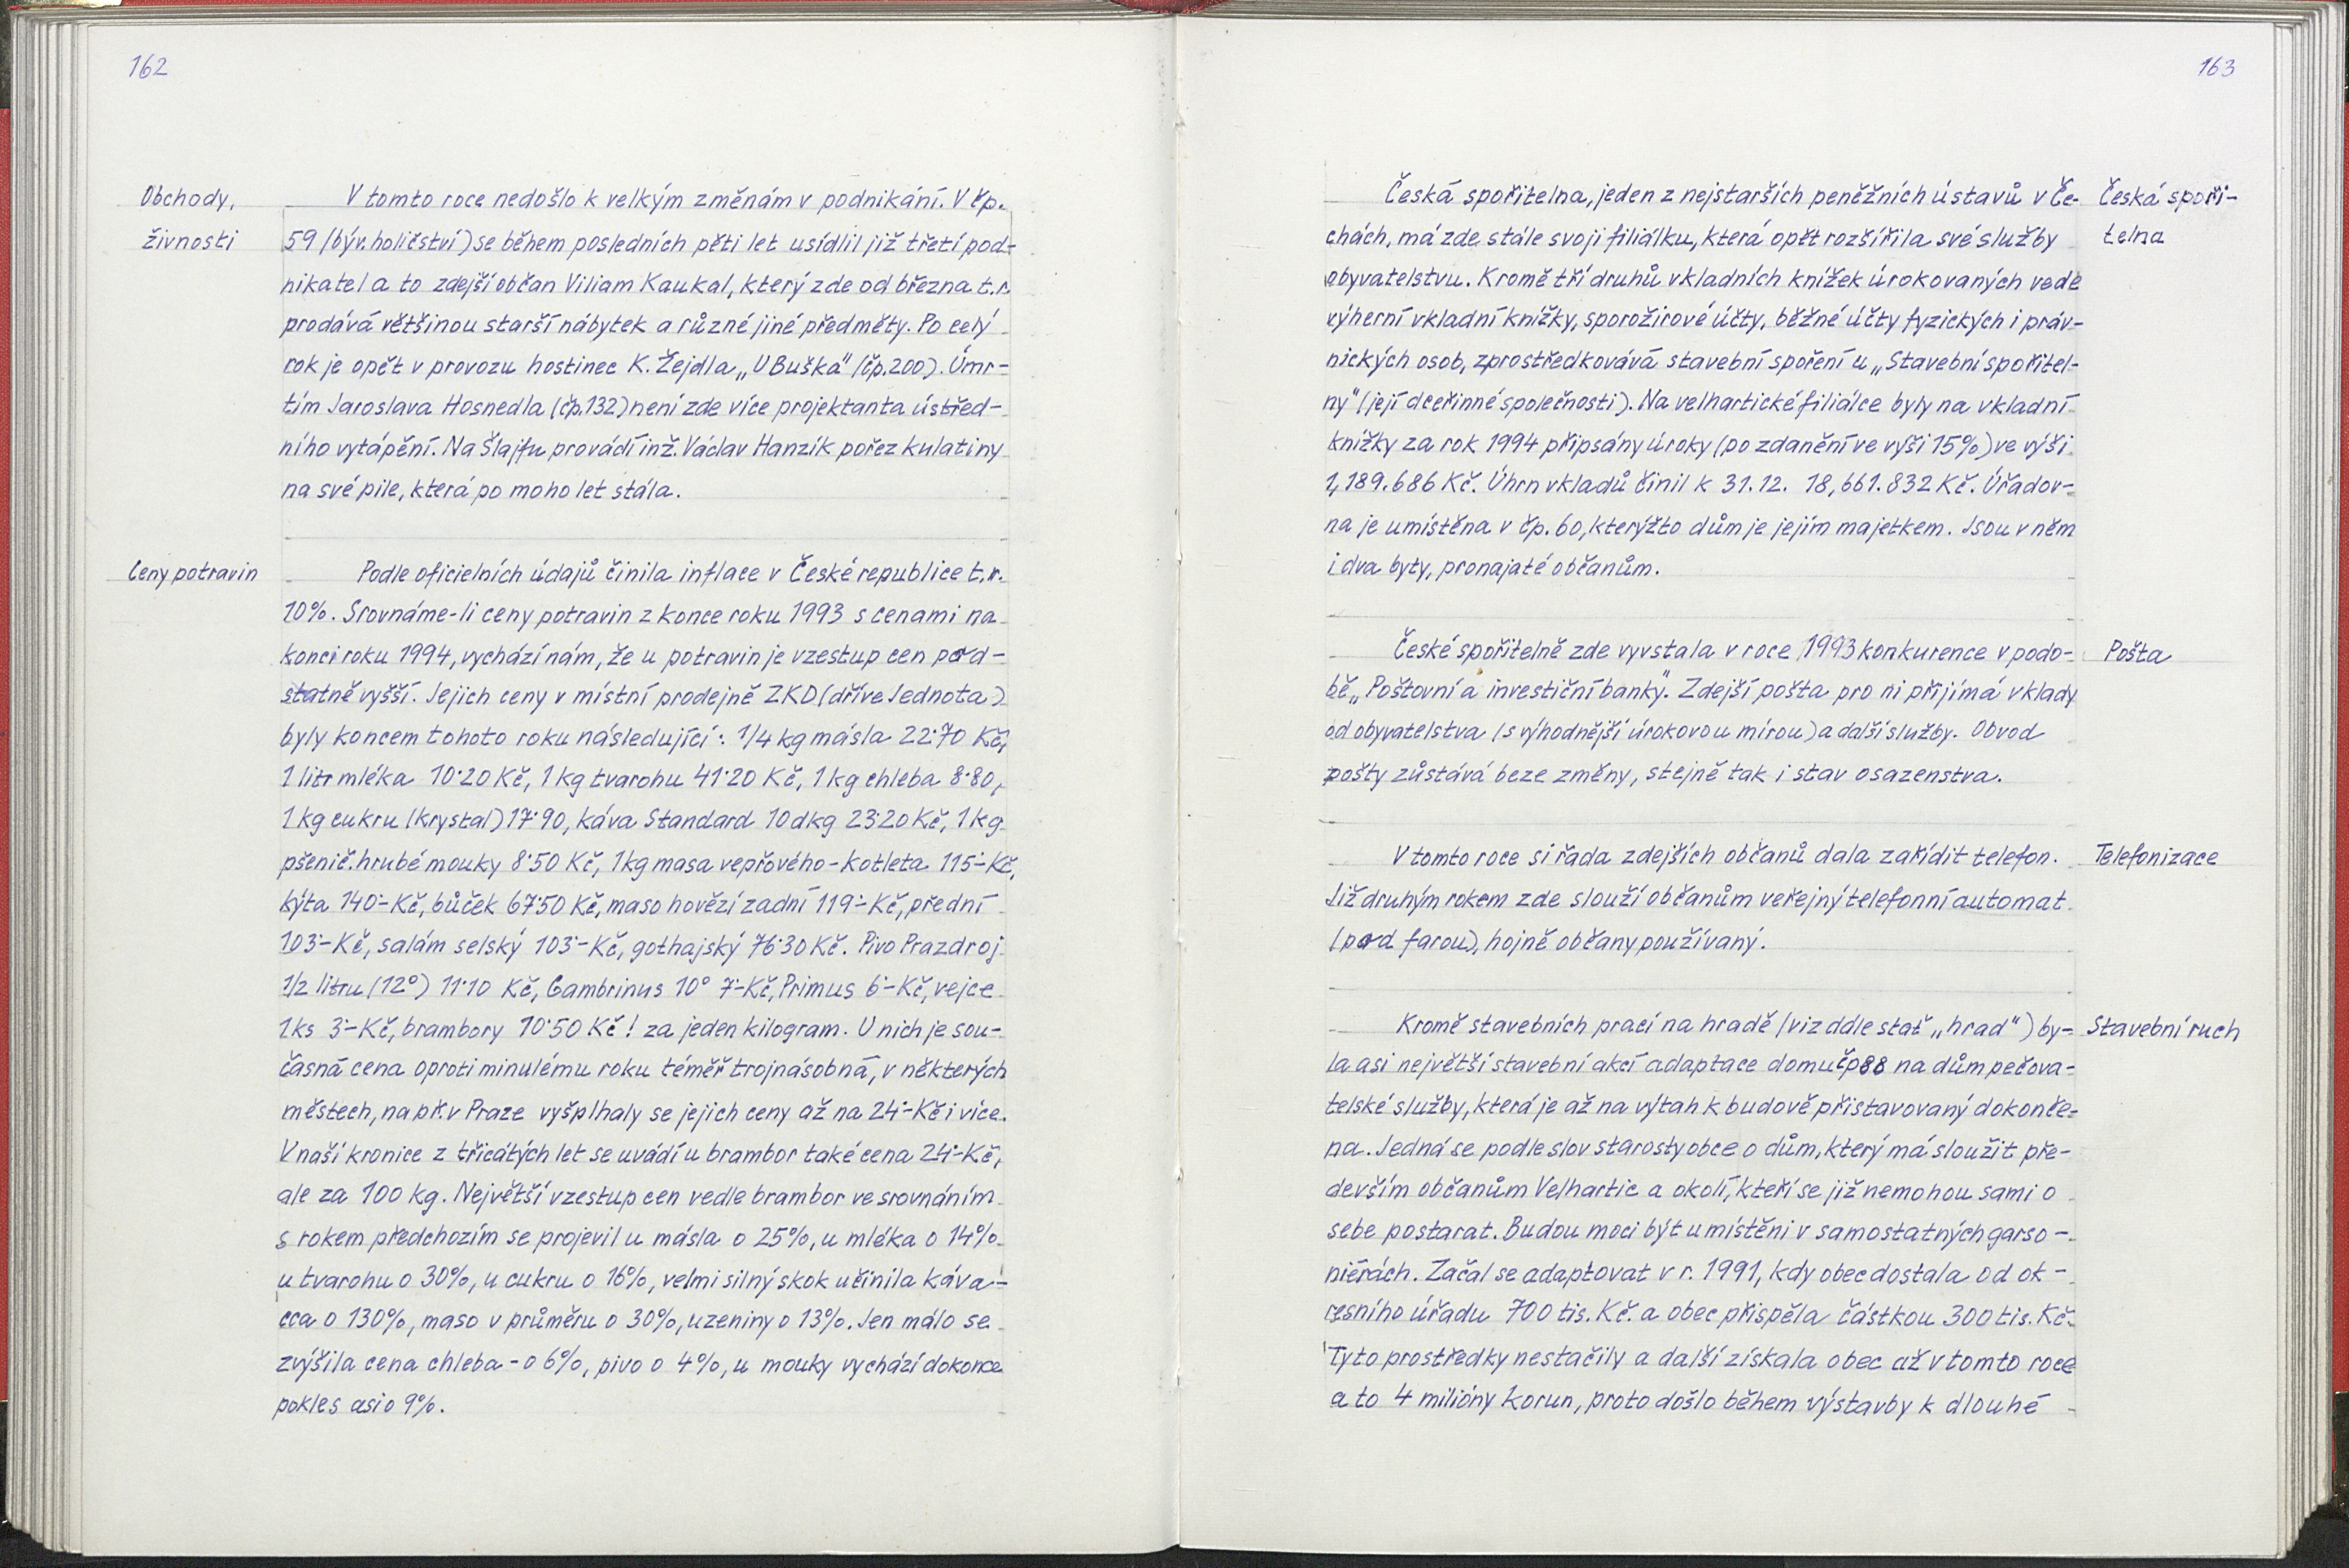 162
Obchody,
živnosti
V tomto roce nedošlo k velkým změnám v podnikání. V čp.
59 (býv. holičství) se během posledních pěti let usídlil již třetí pod-
nikatel a to zdejší občan Viliam Kaukal, který zde od března t.r.
prodává většinou starší nábytek a různé jiné předměty. Po celý
rok je opět v provozu hostinec K. Žejdla „U Buška" (čp. 200). Úmr-
tím Jaroslava Hosnedla (čp. 132) není zde více projektanta ústřed-
ního vytápění. Na Šlajfu provádí inž. Václav Hanzík pořez kulatiny
na své pile, která po moho let stála.
Ceny potravin
Podle oficielních údajů činila inflace v České republice t.r.
10%. Srovnáme-li ceny potravin z konce roku 1993 s cenami na
konci roku 1994, vychází nám, že u potravin je vzestup cen pod-
statně vyšší. Jejich ceny v místní prodejně ZKD (dříve Jednota)
byly koncem tohoto roku následující: 1/4 kg másla 22·70 Kč,
1 litr mléka 10·20 Kč, 1 kg tvarohu 41·20 Kč, 1 kg chleba 8·80,
1 kg cukru (krystal) 17·90, káva Standard 10 dkg 23·20 Kč, 1 kg
pšenič. hrubé mouky 8·50 Kč, 1 kg masa vepřového - kotleta 115·- Kč,
kýta 140·- Kč, bůček 67·50 Kč, maso hovězí zadní 119·- Kč, přední
103·- Kč, salám selský 103·- Kč, gothajský 76·30 Kč. Pivo Prazdroj
1/2 litru (12°) 11·10 Kč, Gambrinus 10° 7·- Kč, Primus 6·- Kč, vejce
1 ks 3·- Kč, brambory 10·50 Kč! za jeden kilogram. U nich je sou-
časná cena oproti minulému roku téměř trojnásobná, v některých
městech, např. v Praze vyšplhaly se jejich ceny až na 24·- Kč i více.
V naší kronice z třicátých let se uvádí u brambor také cena 24·- Kč,
ale za 100 kg. Největší vzestup cen vedle brambor ve srovnáním
s rokem předchozím se projevil u másla o 25%, u mléka o 14%
u tvarohu o 30%, u cukru o 16%, velmi silný skok učinila káva -
cca o 130%, maso v průměru o 30%, uzeniny o 13%. Jen málo se
zvýšila cena chleba - o 6%, pivo o 4%, u mouky vychází dokonce
pokles asi o 9%.
163
Česká spořitelna, jeden z nejstarších peněžních ústavů v Če-
Česká spoři-
chách, má zde stále svoji filiálku, která opět rozšířila své služby
telna
obyvatelstvu. Kromě tří druhů vkladních knížek úrokovaných vede
výherní vkladní knížky, sporožirové účty, běžné účty fyzických i práv-
nických osob, zprostředkovává stavební spoření u „Stavební spořitel-
ny" (její dceřinné společnosti). Na velhartické filiálce byly na vkladní
knížky za rok 1994 připsány úroky (po zdanění ve výši 15%) ve výši
1,189.686 Kč. Úhrn vkladů činil k 31. 12. 18,661.832 Kč. Úřadov-
na je umístěna v čp. 60, kterýžto dům je jejím majetkem. Jsou v něm
i dva byty, pronajaté občanům.
České spořitelně zde vyvstala v roce 1993 konkurence v podo-
Pošta
bě „Poštovní a investiční banky". Zdejší pošta pro ni přijímá vklady
od obyvatelstva (s výhodnější úrokovou mírou) a další služby. Obvod
pošty zůstává beze změny, stejně tak i stav osazenstva.
V tomto roce si řada zdejších občanů dala zařídit telefon.
Telefonizace
Již druhým rokem zde slouží občanům veřejný telefonní automat
(pod farou), hojně občany používaný.
Kromě stavebních prací na hradě (viz ddle stať „hrad") by-
Stavební ruch
la asi největší stavební akcí adaptace domu čp 88 na dům pečova-
telské služby, která je až na výtah k budově přistavovaný dokonče-
na. Jedná se podle slov starosty obce o dům, který má sloužit pře-
devším občanům Velhartic a okolí, kteří se již nemohou sami o
sebe postarat. Budou moci být umístěni v samostatných garso-
niérách. Začal se adaptovat v r. 1991, kdy obec dostala od ok-
resního úřadu 700 tis. Kč. a obec přispěla částkou 300 tis. Kč.
Tyto prostředky nestačily a další získala obec až v tomto roce
a to 4 milióny korun, proto došlo během výstavby k dlouhé